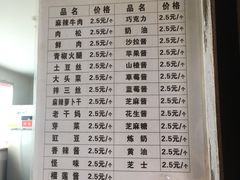 品名 价格 品名 价格
麻辣牛肉 2.5元/个 巧克力 2.5元/个
肉松 2.5元/个 奶油 2.5元/个
鲜肉 2.5元/个 沙拉酱 2.5元/个
青椒火腿 2.5元/个 苹果酱 2.5元/个
土豆丝 2.5元/个 山楂酱 2.5元/个
大头菜 2.5元/个 草莓酱 2.5元/个
拌三丝 2.5元/个 蓝莓酱 2.5元/个
麻辣萝卜干 2.5元/个 芝麻酱 2.5元/个
老干妈 2.5元/个 花生酱 2.5元/个
芽菜 2.5元/个 芝麻糖 2.5元/个
豇豆 2.5元/个 炼奶 2.5元/个
香辣酱 2.5元/个 黄油 2.5元/个
怪味 2.5元/个 芝士 2.5元/个
榴莲酱 2.5元/个